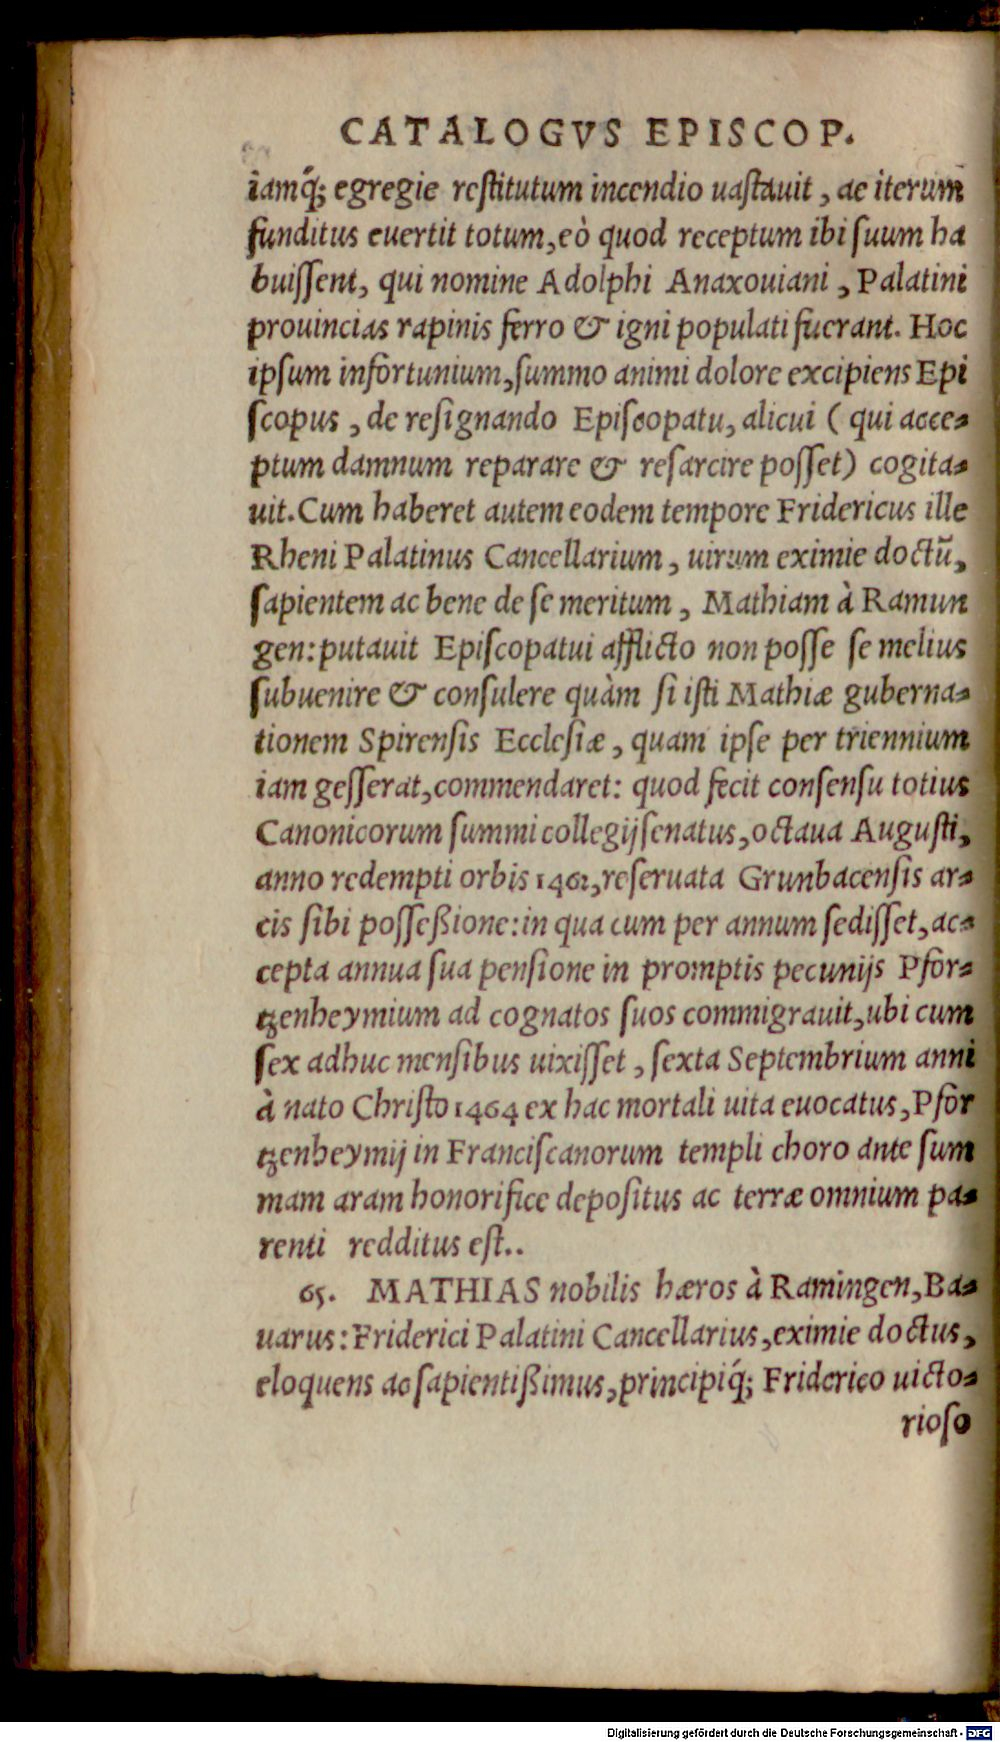 CATALOGVS EPISCOP.
iamq́; egregie restitutum incendio uastauit, ac iterum
funditus euertit totum, eò quod receptum ibi suum ha
buissent, qui nomine Adolphi Anaxouiani, Palatini
prouincias rapinis ferro & igni populati fuerant. Hoc
ipsum infortunium, summo animi dolore excipiens Epi
scopus, de resignando Episcopatu, alicui ( qui acce-
ptum damnum reparare & resarcire posset) cogita-
uit. Cum haberet autem eodem tempore Fridericus ille
Rheni Palatinus Cancellarium, uirum eximie doctū,
sapientem ac bene de se meritum, Mathiam à Ramun
gen: putauit Episcopatui afflicto non posse se melius
subuenire & consulere quàm si isti Mathiæ guberna-
tionem Spirensis Ecclesiæ, quam ipse per triennium
iam gesserat, commendaret: quod fecit consensu totius
Canonicorum summi collegij senatus, octaua Augusti,
anno redempti orbis 1462, reseruata Grunbacensis ar-
cis sibi posseßione: in qua cum per annum sedisset, ac-
cepta annua sua pensione in promptis pecunijs Pfor-
tzenheymium ad cognatos suos commigrauit, ubi cum
sex adhuc mensibus uixisset, sexta Septembrium anni
à nato Christo 1464 ex hac mortali uita euocatus, Pfor
tzenheymij in Franciscanorum templi choro ante sum
mam aram honorifice depositus ac terræ omnium pa-
renti redditus est..
65. MATHIAS nobilis hæros à Ramingen, Ba-
uarus: Friderici Palatini Cancellarius, eximie doctus,
eloquens ac sapientißimus, principiq́; Friderico uicto-
rioso
Digitalisierung gefördert durch die Deutsche Forschungsgemeinschaft - DFG